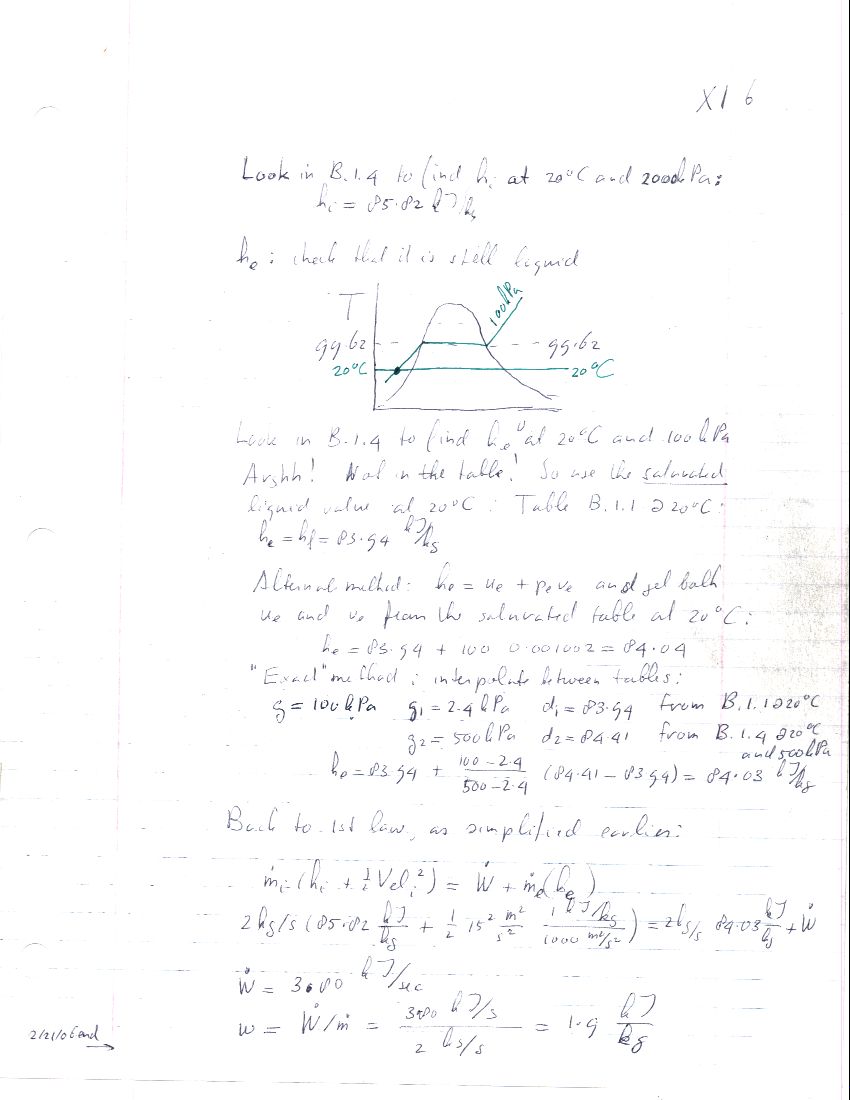 XI 6
Look in B.1.4 to find hi at 20°C and 2000kPa:
hi = 85.82 kJ/kg
he: check that it is still liquid
T
100kPa
99.62
99.62
20°C
20°C
Look in B.1.4 to find he at 20°C and 100 kPa
Arghh! Not in the table! So use the saturated
liquid value at 20°C: Table B.1.1 @ 20°C:
he = hf = 83.94 kJ/kg
Alternat method: he = ue + peve and get both
ue and ve from the saturated table at 20°C:
he = 83.94 + 100 0.001002 = 84.04
"Exact" method: interpolate between tables:
g = 100kPa g1 = 2.4 kPa d1 = 83.94 from B.1.1 @ 20°C
g2 = 500kPa d2 = 84.41 from B.1.4 @ 20°C
and 500kPa
he = 83.94 + (100 - 2.4)/(500 - 2.4) (84.41 - 83.94) = 84.03 kJ/kg
Back to 1st law, as simplified earlier:
ṁi (hi + ½ Veli²) = Ẇ + ṁe(he)
2 kg/s (85.82 kJ/kg + ½ 15² m²/s² 1 kJ/kg / 1000 m²/s²) = 2kg/s 84.03 kJ/kg + Ẇ
Ẇ = 3.80 kJ/sec
w = Ẇ/ṁ = 3.80 kJ/s / 2 kg/s = 1.9 kJ/kg
2/21/06 end